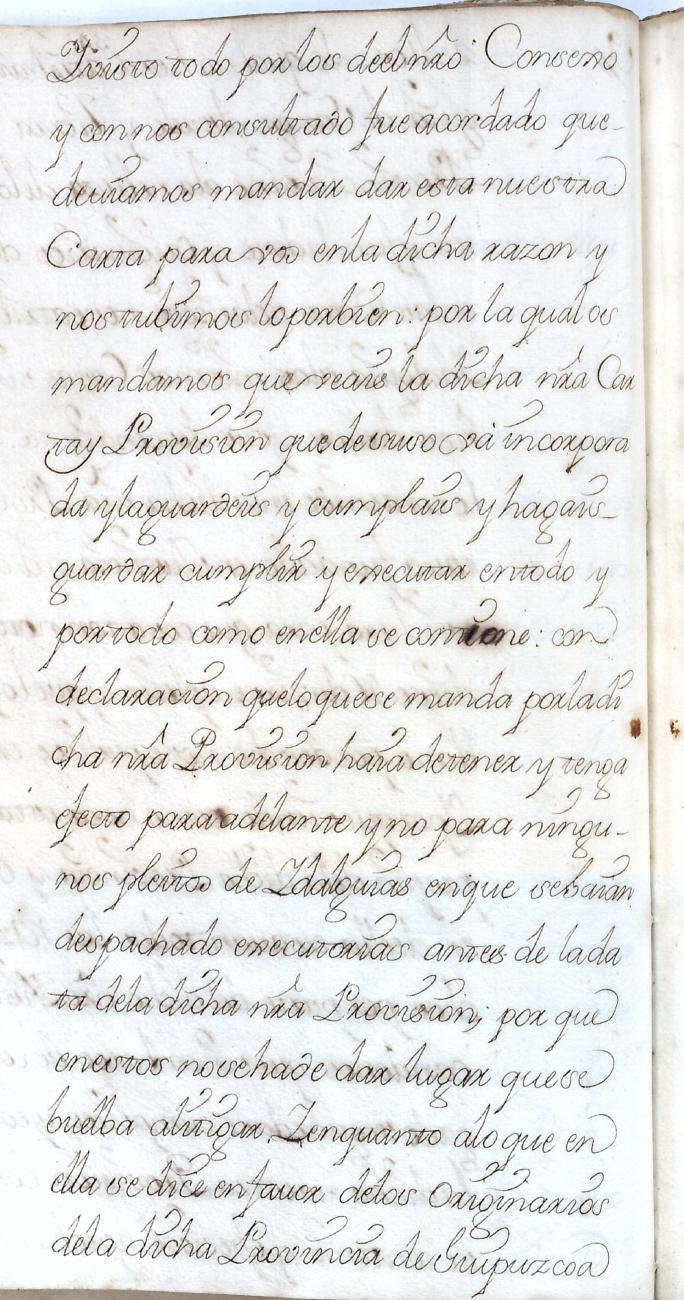 Y visto todo por los deel nro Consexo
y con nos consultado fue acordado que
deuiamos mandar dar esta nuestra
Carta para vos en la dicha razon y
nos tubimos lo por bien: por la qual os
mandamos que veais la dicha nra Car
ta y Provision que de suso va incorpora
da y la guardeis y cumplais y hagais
guardar cumplir y executar en todo y
por todo como en ella se contiene: con
declaracion que lo que se manda por la di
cha nra Provision haia de tener y tenga
efecto para adelante y no para ningu-
nos pleitos de Ydalguias en que se haian
despachado executorias antes de la da
ta de la dicha nra Provision; por que
en estos no se ha de dar lugar que se
buelba a litigar. Y en quanto a lo que en
ella se dice en fauor de los Originarios
de la dicha Provincia de Guipuzcoa